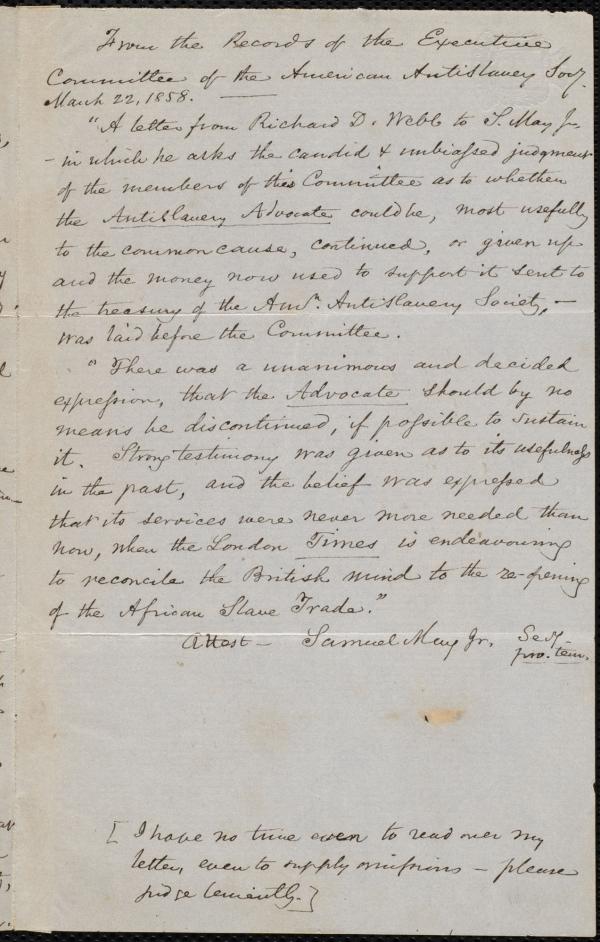 From the Records of the Executive
Committee of the American Antislavery Socy.
March 22, 1858.
"A letter from Richard D. Webb to S. May Jr.
- in which he asks the candid & unbiassed judgment
of the members of this Committee as to whether
the Antislavery Advocate could be, most usefully
to the common cause, continued, or given up
and the money now used to support it sent to
the treasury of the Amn. Antislavery Society, -
was laid before the Committee.
"There was a unanimous and decided
expression, that the Advocate should by no
means be discontinued, if possible to sustain
it. Strong testimony was given as to its usefulness
in the past, and the belief was expressed
that its services were never more needed than
now, when the London Times is endeavouring
to reconcile the British mind to the re-opening
of the African Slave Trade."
Attest - Samuel May Jr. Secy.
pro. tem.
[I have no time even to read over my
letter, even to supply omissions - please
judge leniently.]